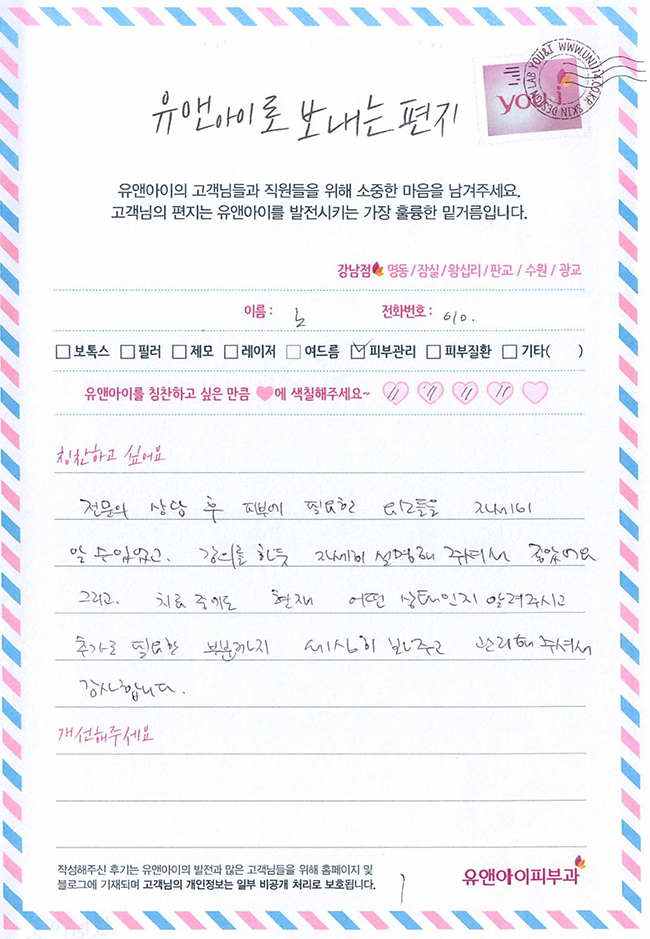 유앤아이로 보내는 편지
you&i
SKIN DESIGN LAB YOU&I WWW.UNI114.CO.KR
유앤아이의 고객님들과 직원들을 위해 소중한 마음을 남겨주세요.
고객님의 편지는 유앤아이를 발전시키는 가장 훌륭한 밑거름입니다.
강남점 명동 / 잠실 / 왕십리 / 판교 / 수원 / 광교
이름 : 노 전화번호 : 010.
보톡스 필러 제모 레이저 여드름 피부관리 피부질환 기타( )
유앤아이를 칭찬하고 싶은 만큼 에 색칠해주세요~
칭찬하고 싶어요
전문의 상담 후 피부에 필요한 요소들을 자세히
알 수 있었고. 강의를 하듯 자세히 설명해 주셔서 좋았어요
그리고. 치료 중에도 현재 어떤 상태인지 알려주시고
추가로 필요한 부분까지 세심히 봐주고 관리해 주셔서
감사합니다.
개선해주세요
작성해주신 후기는 유앤아이의 발전과 많은 고객님들을 위해 홈페이지 및
블로그에 기재되며 고객님의 개인정보는 일부 비공개 처리로 보호됩니다.
유앤아이피부과